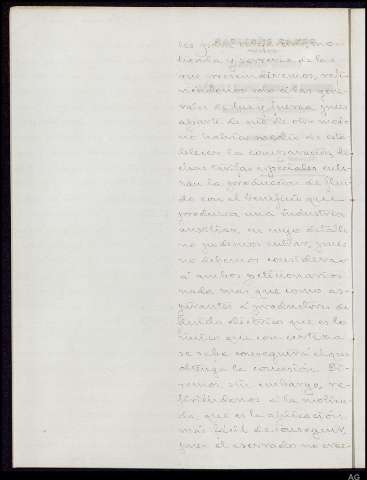 tienda y serrería de las
que prescindiremos, refi-
riéndonos solo á las gene-
rales de luz y fuerza, pues
aparte de ser de otro modo
no habría medio de esta-
blecer la comparación, de
esas tarifas especiales enla-
zan la producción de flui-
do con el beneficio que
produzca una industria
auxiliar, en cuyo detalle
no podemos entrar, pues
no debemos considerar
á ambos peticionarios
nada más que como as-
pirantes á productores de
fluido eléctrico que es lo
único que con certeza
se sabe conseguirá el que
obtenga la concesión. Di-
remos sin embargo, re-
firiéndonos á la molien-
da, que es la aplicación
más fácil de conseguir,
pues el aserrado no exce-
AG